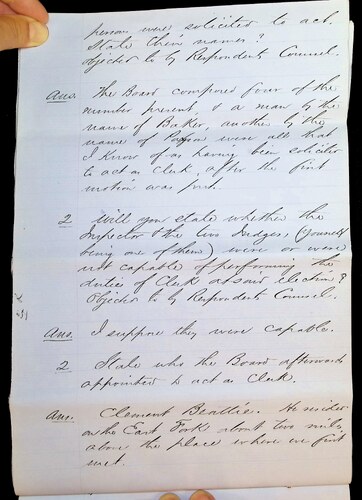 persons were solicited to act.
State their names?
Objected to by Respondents Counsel.
Ans. The Board composed four of the
number present, & a man by the
name of Baker, another by the
name of were all that
I know of as having been solicited
to act as Clerk, after the first
motion was put.
2 Will you state whether the
Inspector & the two Judges, (yourself
being one of them) were or were
not capable of performing the
duties of Clerk at said election?
Objected to by Respondents Counsel.
Ans. I suppose they were capable.
2 State who the Board afterwards
appointed to act as Clerk.
Ans. Clement Beattie. He resides
on the East Fork about two miles
above the place where we first
met.